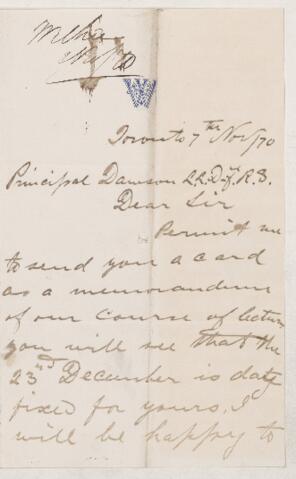 Toronto 7th Nov/70
Principal Dawson LL.D. F.R.S.
Dear Sir
Permit me
to send you a card
as a memorandum
of our course of lectures
you will see that the
23rd December is date
fixed for yours, I
will be happy to